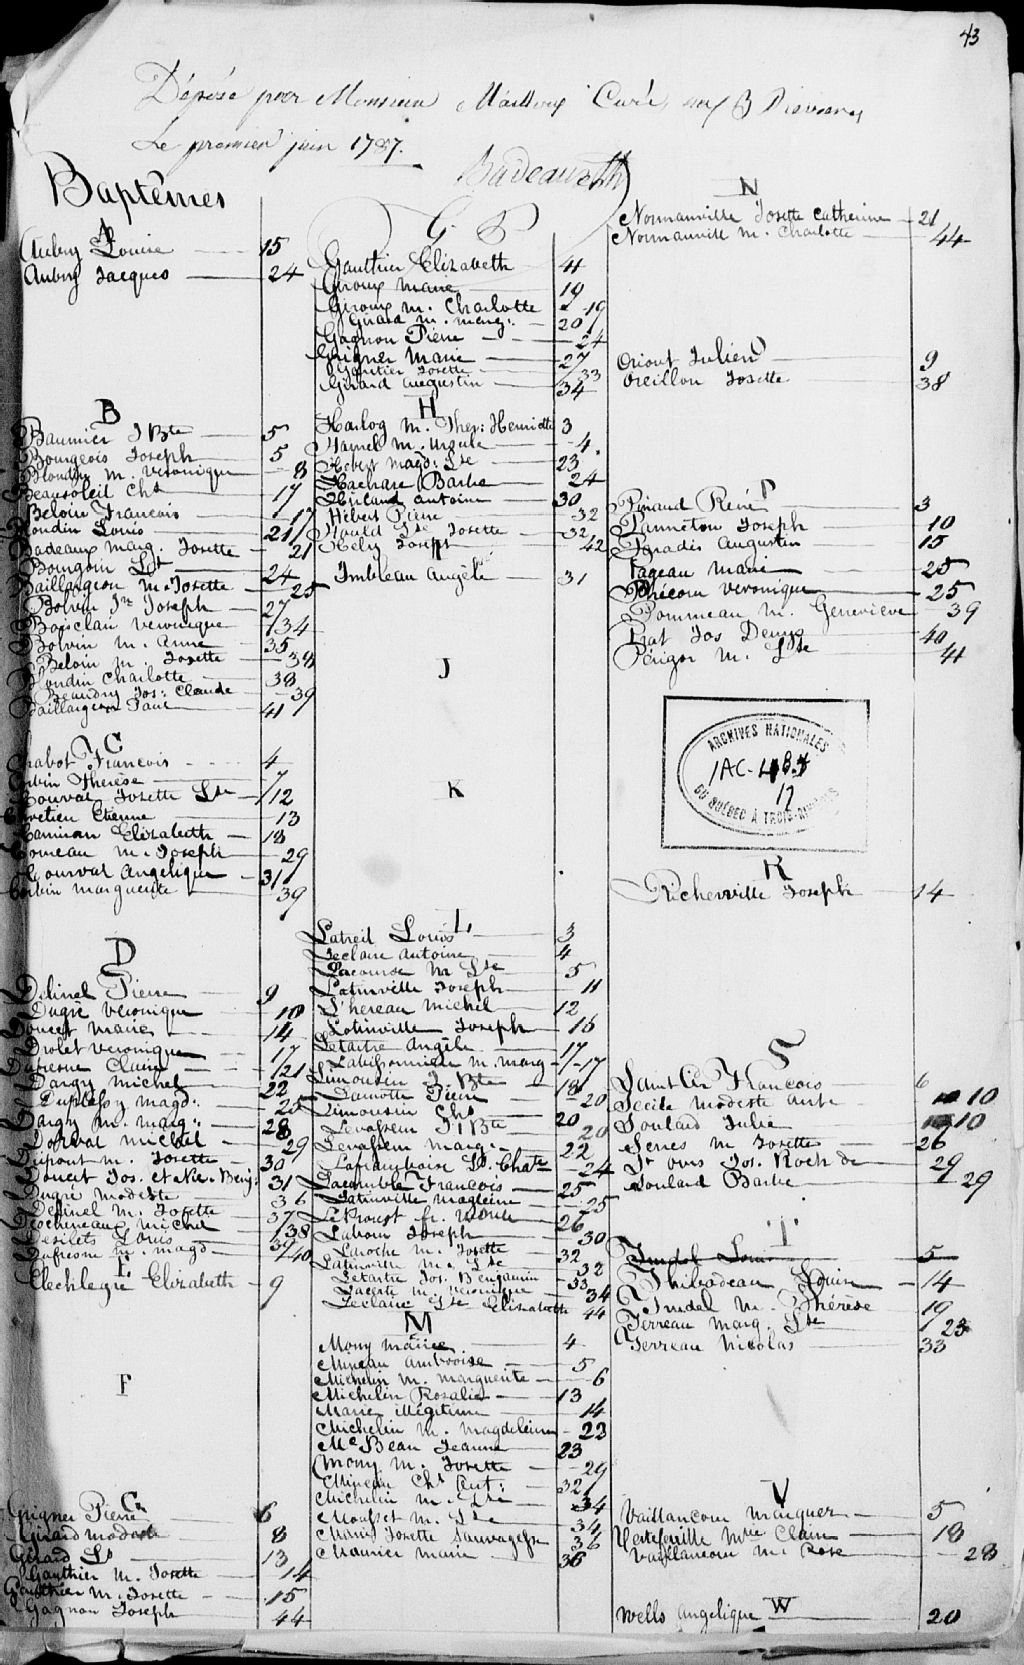 43
Déposé par Monsieur Mailloux Curé aux 3 Rivieres
Le premier juin 1787.
Badeaux
Baptêmes
A
Aubry Louise 15
Aubry Jacques 24
B
Baumier J Bte 5
Bourgeois Joseph 5
Blondin M. Veronique 8
Beausoleil Chs 17
Beloin Francois 17
Blondin Louis 21
Badeaux Marg. Josette 21
Bourgoin Ls 24
Baillargeon M. Josette 25
Boivin Jn Joseph 27
Boisclair Veronique 34
Boivin M. Anne 35
Beloin M. Josette 38
Blondin Charlotte 38
Beaudry Jos: Claude 39
Baillargeon Paul 41
C
Chabot Francois 4
Corbin Therèse 7
Courval Josette Lse 12
Chretien Etienne 13
Camiran Elizabeth 18
Comeau M. Joseph 29
Courval Angelique 31
Corbin Marguerite 39
D
Delinel Pierre 9
Dugré Veronique 10
Doucet Marie 14
Drolet Veronique 17
Dufresne Claire 21
Dargy Michel 22
Duplessy Magd: 25
Dargy M. Marg: 28
Dorval Michel 29
Dupont M. Josette 30
Doucet Jos. et Nic. Benj: 31
Dugré Modeste 36
Delinel M. Josette 37
Duchenaux Michel 38
Desilets Louis 39
Dufresne M. Magd 40
E
Elechleyre Elizabeth 9
F
G
Grigner Pierre 6
Girard Modeste 8
Girard Ls 13
Gauthier M. Josette 14
Gauthier M. Josette 15
Gagnon Joseph 44
G
Gauthier Elizabeth 4
Giroux Marie 19
Giroux M. Charlotte 19
Girard M. Marg: 20
Gagnon Pierre 24
Grigner Marie 27
Gautier Josette 33
Girard Augustin 34
H
Harlog M. Ther: Henriette 3
Hamel M. Ursule 4
Hebert Magd: Lse 23
Hachare Barbe 24
Huland Antoine 30
Hébert Pierre 32
Hould Lse Josette 32
Hely Joseph 42
I
Imbleau Angele 31
J
K
L
Latreil Louis 3
Leclaire Antoine 4
Lacourse M Lse 5
Latinville Joseph 11
L'hereau Michel 12
Lotinville Joseph 16
Letartre Angele 17
Labissonniere M. Marg 17
Limousin J. Bte 18
Lamotte Pierre 20
Limousin Chs 20
Levasseur J Bte 20
Levasseur Marg. 22
Laframboise Ls. Chate 24
Lacombe Francois 25
Latinville Magleine 25
LeProust fr. 26
Labour Joseph 30
Laroche M. Josette 32
Latinville M. Lse 32
Letartre Jos. Benjamin 33
Lacerte M. Veronique 34
Leclaire Lse Elizabeth 44
M
Mony Marie 4
Mineau Ambroise 5
Michelin M. Marguerite 6
Michelin Rosalie 13
Marie illégitime 14
Michelin M. Magdeleine 23
Mc Bean Jeanne 23
Mony M. Josette 29
Mineau Chs Ant: 32
Michelin M. Lse 34
Mousset M. Lse 34
Marie Josette Sauvagesse 36
Maurier Marie 36
N
Normanville Josette Catherine 21
Normanville M. Charlotte 44
O
Oriout Julien 9
Oreillon Josette 38
P
Pinaud René 3
Panneton Joseph 10
Paradis Augustin 15
Pageau Marie 25
Phécou Veronique 25
Pommeau M. Genevieve 39
Prat Jos Denys 40
Périgor M. Lse 41
ARCHIVES NATIONALES
1AC-
17
DU QUÉBEC À TROIS-RIVIÈRES
R
Richerville Joseph 14
S
Saint Cir Francois 6
Secile Modeste Ant. 10
Soulard Julie 10
Serres M Josette 26
St Ours Jos. Roch de 29
Soulard Barbe 29
T
Trudel Louis 5
Thibodeau Louise 14
Trudel M. Thérèse 19
Terreau Marg. Lse 23
Terreau Nicolas 33
V
Vaillancour Marguer. 5
Vertefeuille Mrie Claire 18
Vaillancour M. Rose 28
W
Wells Angelique 20